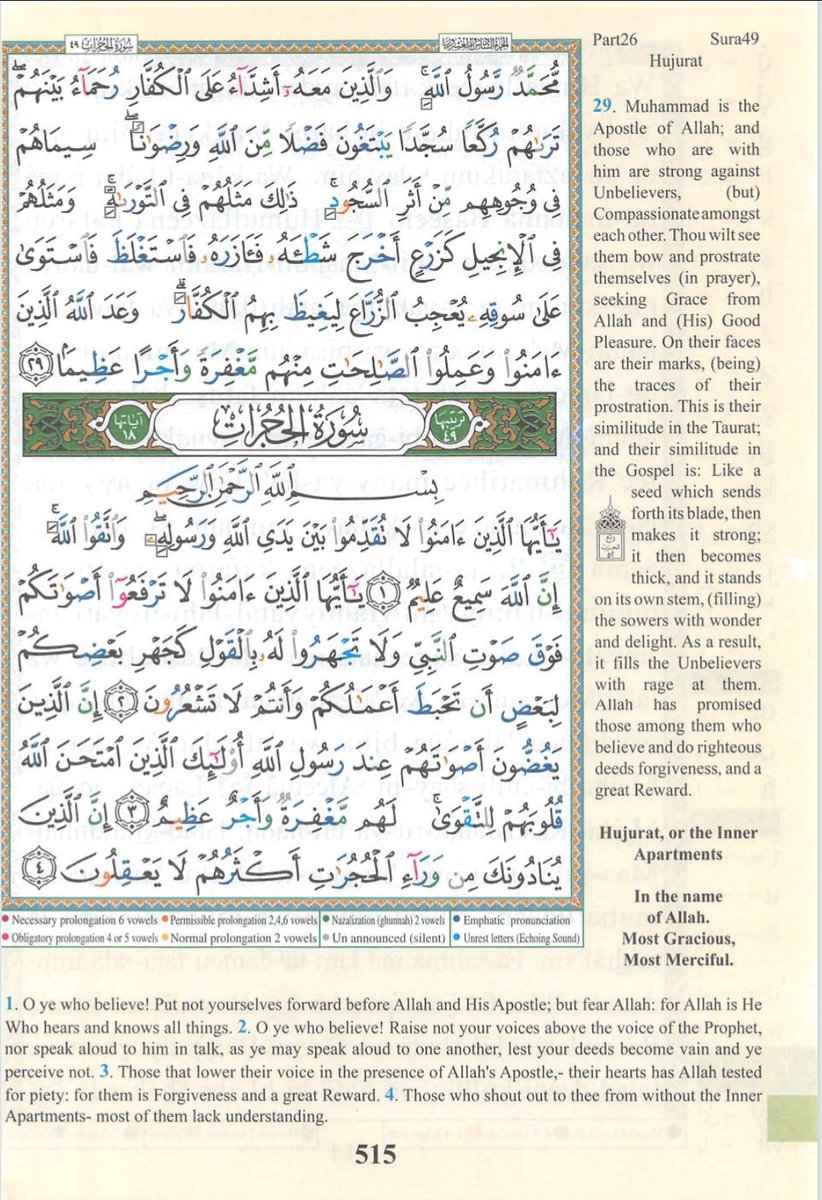 سُورَةُ الحُجُرَاتِ ٤٩
الجُزءُ السَّادِسُ وَالعِشرُونَ
مُّحَمَّدٌ رَّسُولُ ٱللَّهِۚ وَٱلَّذِينَ مَعَهُۥٓ أَشِدَّآءُ عَلَى ٱلْكُفَّارِ رُحَمَآءُ بَيْنَهُمْۖ
تَرَىٰهُمْ رُكَّعًا سُجَّدًا يَبْتَغُونَ فَضْلًا مِّنَ ٱللَّهِ وَرِضْوَٰنًاۖ سِيمَاهُمْ
فِى وُجُوهِهِم مِّنْ أَثَرِ ٱلسُّجُودِۚ ذَٰلِكَ مَثَلُهُمْ فِى ٱلتَّوْرَىٰةِۚ وَمَثَلُهُمْ
فِى ٱلْإِنجِيلِ كَزَرْعٍ أَخْرَجَ شَطْـَٔهُۥ فَـَٔازَرَهُۥ فَٱسْتَغْلَظَ فَٱسْتَوَىٰ
عَلَىٰ سُوقِهِۦ يُعْجِبُ ٱلزُّرَّاعَ لِيَغِيظَ بِهِمُ ٱلْكُفَّارَۗ وَعَدَ ٱللَّهُ ٱلَّذِينَ
ءَامَنُوا۟ وَعَمِلُوا۟ ٱلصَّٰلِحَٰتِ مِنْهُم مَّغْفِرَةً وَأَجْرًا عَظِيمًۢا ٢٩
ترتيبها ٤٩ سُورَةُ الحُجُرَاتِ آياتها ١٨
بِسْمِ ٱللَّهِ ٱلرَّحْمَٰنِ ٱلرَّحِيمِ
يَٰٓأَيُّهَا ٱلَّذِينَ ءَامَنُوا۟ لَا تُقَدِّمُوا۟ بَيْنَ يَدَىِ ٱللَّهِ وَرَسُولِهِۦۖ وَٱتَّقُوا۟ ٱللَّهَۚ
إِنَّ ٱللَّهَ سَمِيعٌ عَلِيمٌ ١ يَٰٓأَيُّهَا ٱلَّذِينَ ءَامَنُوا۟ لَا تَرْفَعُوٓا۟ أَصْوَٰتَكُمْ
فَوْقَ صَوْتِ ٱلنَّبِىِّ وَلَا تَجْهَرُوا۟ لَهُۥ بِٱلْقَوْلِ كَجَهْرِ بَعْضِكُمْ
لِبَعْضٍ أَن تَحْبَطَ أَعْمَٰلُكُمْ وَأَنتُمْ لَا تَشْعُرُونَ ٢ إِنَّ ٱلَّذِينَ
يَغُضُّونَ أَصْوَٰتَهُمْ عِندَ رَسُولِ ٱللَّهِ أُو۟لَٰٓئِكَ ٱلَّذِينَ ٱمْتَحَنَ ٱللَّهُ
قُلُوبَهُمْ لِلتَّقْوَىٰۚ لَهُم مَّغْفِرَةٌ وَأَجْرٌ عَظِيمٌ ٣ إِنَّ ٱلَّذِينَ
يُنَادُونَكَ مِن وَرَآءِ ٱلْحُجُرَٰتِ أَكْثَرُهُمْ لَا يَعْقِلُونَ ٤
Necessary prolongation 6 vowels Permissible prolongation 2,4,6 vowels Nazalization (ghunnah) 2 vowels Emphatic pronunciation
Obligatory prolongation 4 or 5 vowels Normal prolongation 2 vowels Un announced (silent) Unrest letters (Echoing Sound)
Part26 Sura49
Hujurat
29. Muhammad is the
Apostle of Allah; and
those who are with
him are strong against
Unbelievers, (but)
Compassionate amongst
each other. Thou wilt see
them bow and prostrate
themselves (in prayer),
seeking Grace from
Allah and (His) Good
Pleasure. On their faces
are their marks, (being)
the traces of their
prostration. This is their
similitude in the Taurat;
and their similitude in
the Gospel is: Like a
seed which sends
forth its blade, then
makes it strong;
it then becomes
thick, and it stands
on its own stem, (filling)
the sowers with wonder
and delight. As a result,
it fills the Unbelievers
with rage at them.
Allah has promised
those among them who
believe and do righteous
deeds forgiveness, and a
great Reward.
Hujurat, or the Inner
Apartments
In the name
of Allah.
Most Gracious,
Most Merciful.
1. O ye who believe! Put not yourselves forward before Allah and His Apostle; but fear Allah: for Allah is He
Who hears and knows all things. 2. O ye who believe! Raise not your voices above the voice of the Prophet,
nor speak aloud to him in talk, as ye may speak aloud to one another, lest your deeds become vain and ye
perceive not. 3. Those that lower their voice in the presence of Allah's Apostle,- their hearts has Allah tested
for piety: for them is Forgiveness and a great Reward. 4. Those who shout out to thee from without the Inner
Apartments- most of them lack understanding.
515